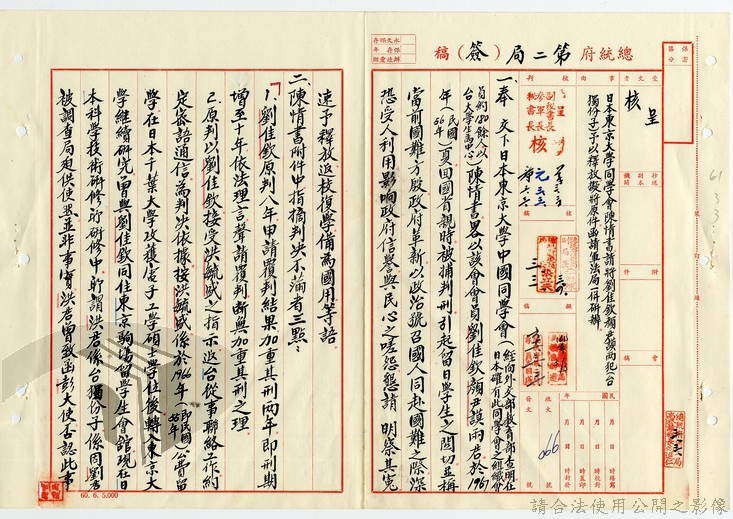 總統府第二局（簽）稿
永久保存
保存年
受文者
核呈
事由
日本東京大學同學會陳情書請將劉佳欽顏尹謨兩犯（台
獨份子）予以釋放擬將原件函請軍法局併研辦
附件
會稿
呈
副秘書長
參軍長
秘書長
核
擬稿
民國 年
發文
收文
666
一、奉 交下日本東京大學中國同學會（經向外交部教育部查明在
日本確有此同學會之組織會
員約180餘人以
台大學生為中心）陳情書畧以該會會員劉佳欽顏尹謨兩君於1967
年（民國
56年）夏回國省親時被捕判刑引起留日學生之關切並稱
當前國難方殷政府革新以政治號召國人同赴國難之際深
恐受人利用影響政府信譽與民心之嗟怨懇請 明察其冤
速予釋放返校復學備為國用等語
二、陳情書附件中指摘判決不滿者三點：
1.劉佳欽原判八年申請覆判結果加重其刑兩年即刑期
增至十年依法理言聲請覆判斷無加重其刑之理
2.原判以劉佳欽接受洪毓盛之指示返台從事聯絡工作約
定密語通信為判決依據按洪毓盛係於1966年（即民國
55年）公費留
學在日本千葉大學攻獲電子工學碩士學位後轉入東京大
學繼續研究當與劉佳欽同住東京駒場留學生會館現在日
本科學技術研修所研修中所謂洪君係台獨份子係因劉君
被調查局迫供使然並非事實洪君曾致函彭大使否認此事
60. 6. 5,000
請合法使用公開之影像